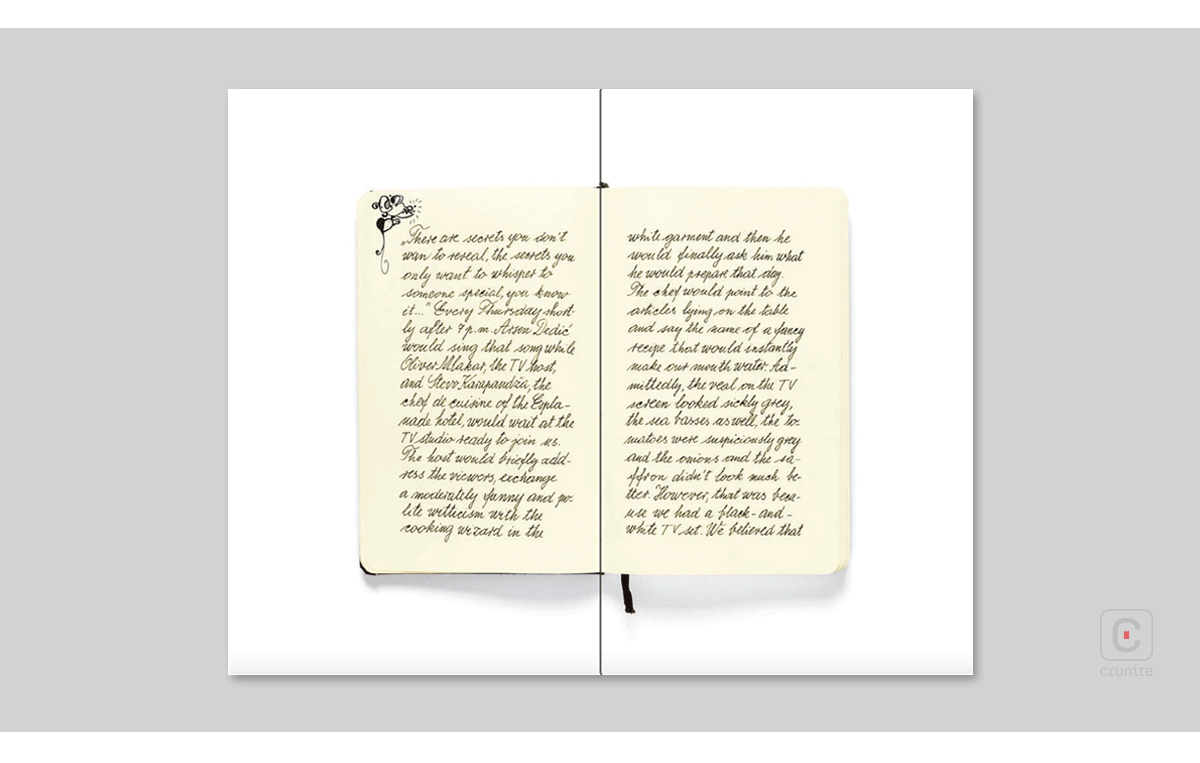 „There are secrets you don't
wan to reveal, the secrets you
only want to whisper to
someone special, you know
it..." Every Thursday short-
ly after 7 p.m. Arsen Dedić
would sing that song while
Oliver Mlakar, the TV host,
and Stevo Karapandža, the
chef de cuisine of the Espla-
nade hotel, would wait at the
TV studio ready to join us.
The host would briefly add-
ress the viewers, exchange
a moderately funny and po-
lite witticism with the
cooking wizard in the
white garment and then he
would finally ask him what
he would prepare that day.
The chef would point to the
articles lying on the table
and say the name of a fancy
recipe that would instantly
make our mouth water. Ad-
mittedly, the veal on the TV
screen looked sickly grey,
the sea basses as well, the to-
matoes were suspiciously grey
and the onions and the sa-
ffron didn't look much be-
tter. However, that was beca-
use we had a black-and-
white TV set. We believed that
C
crunite